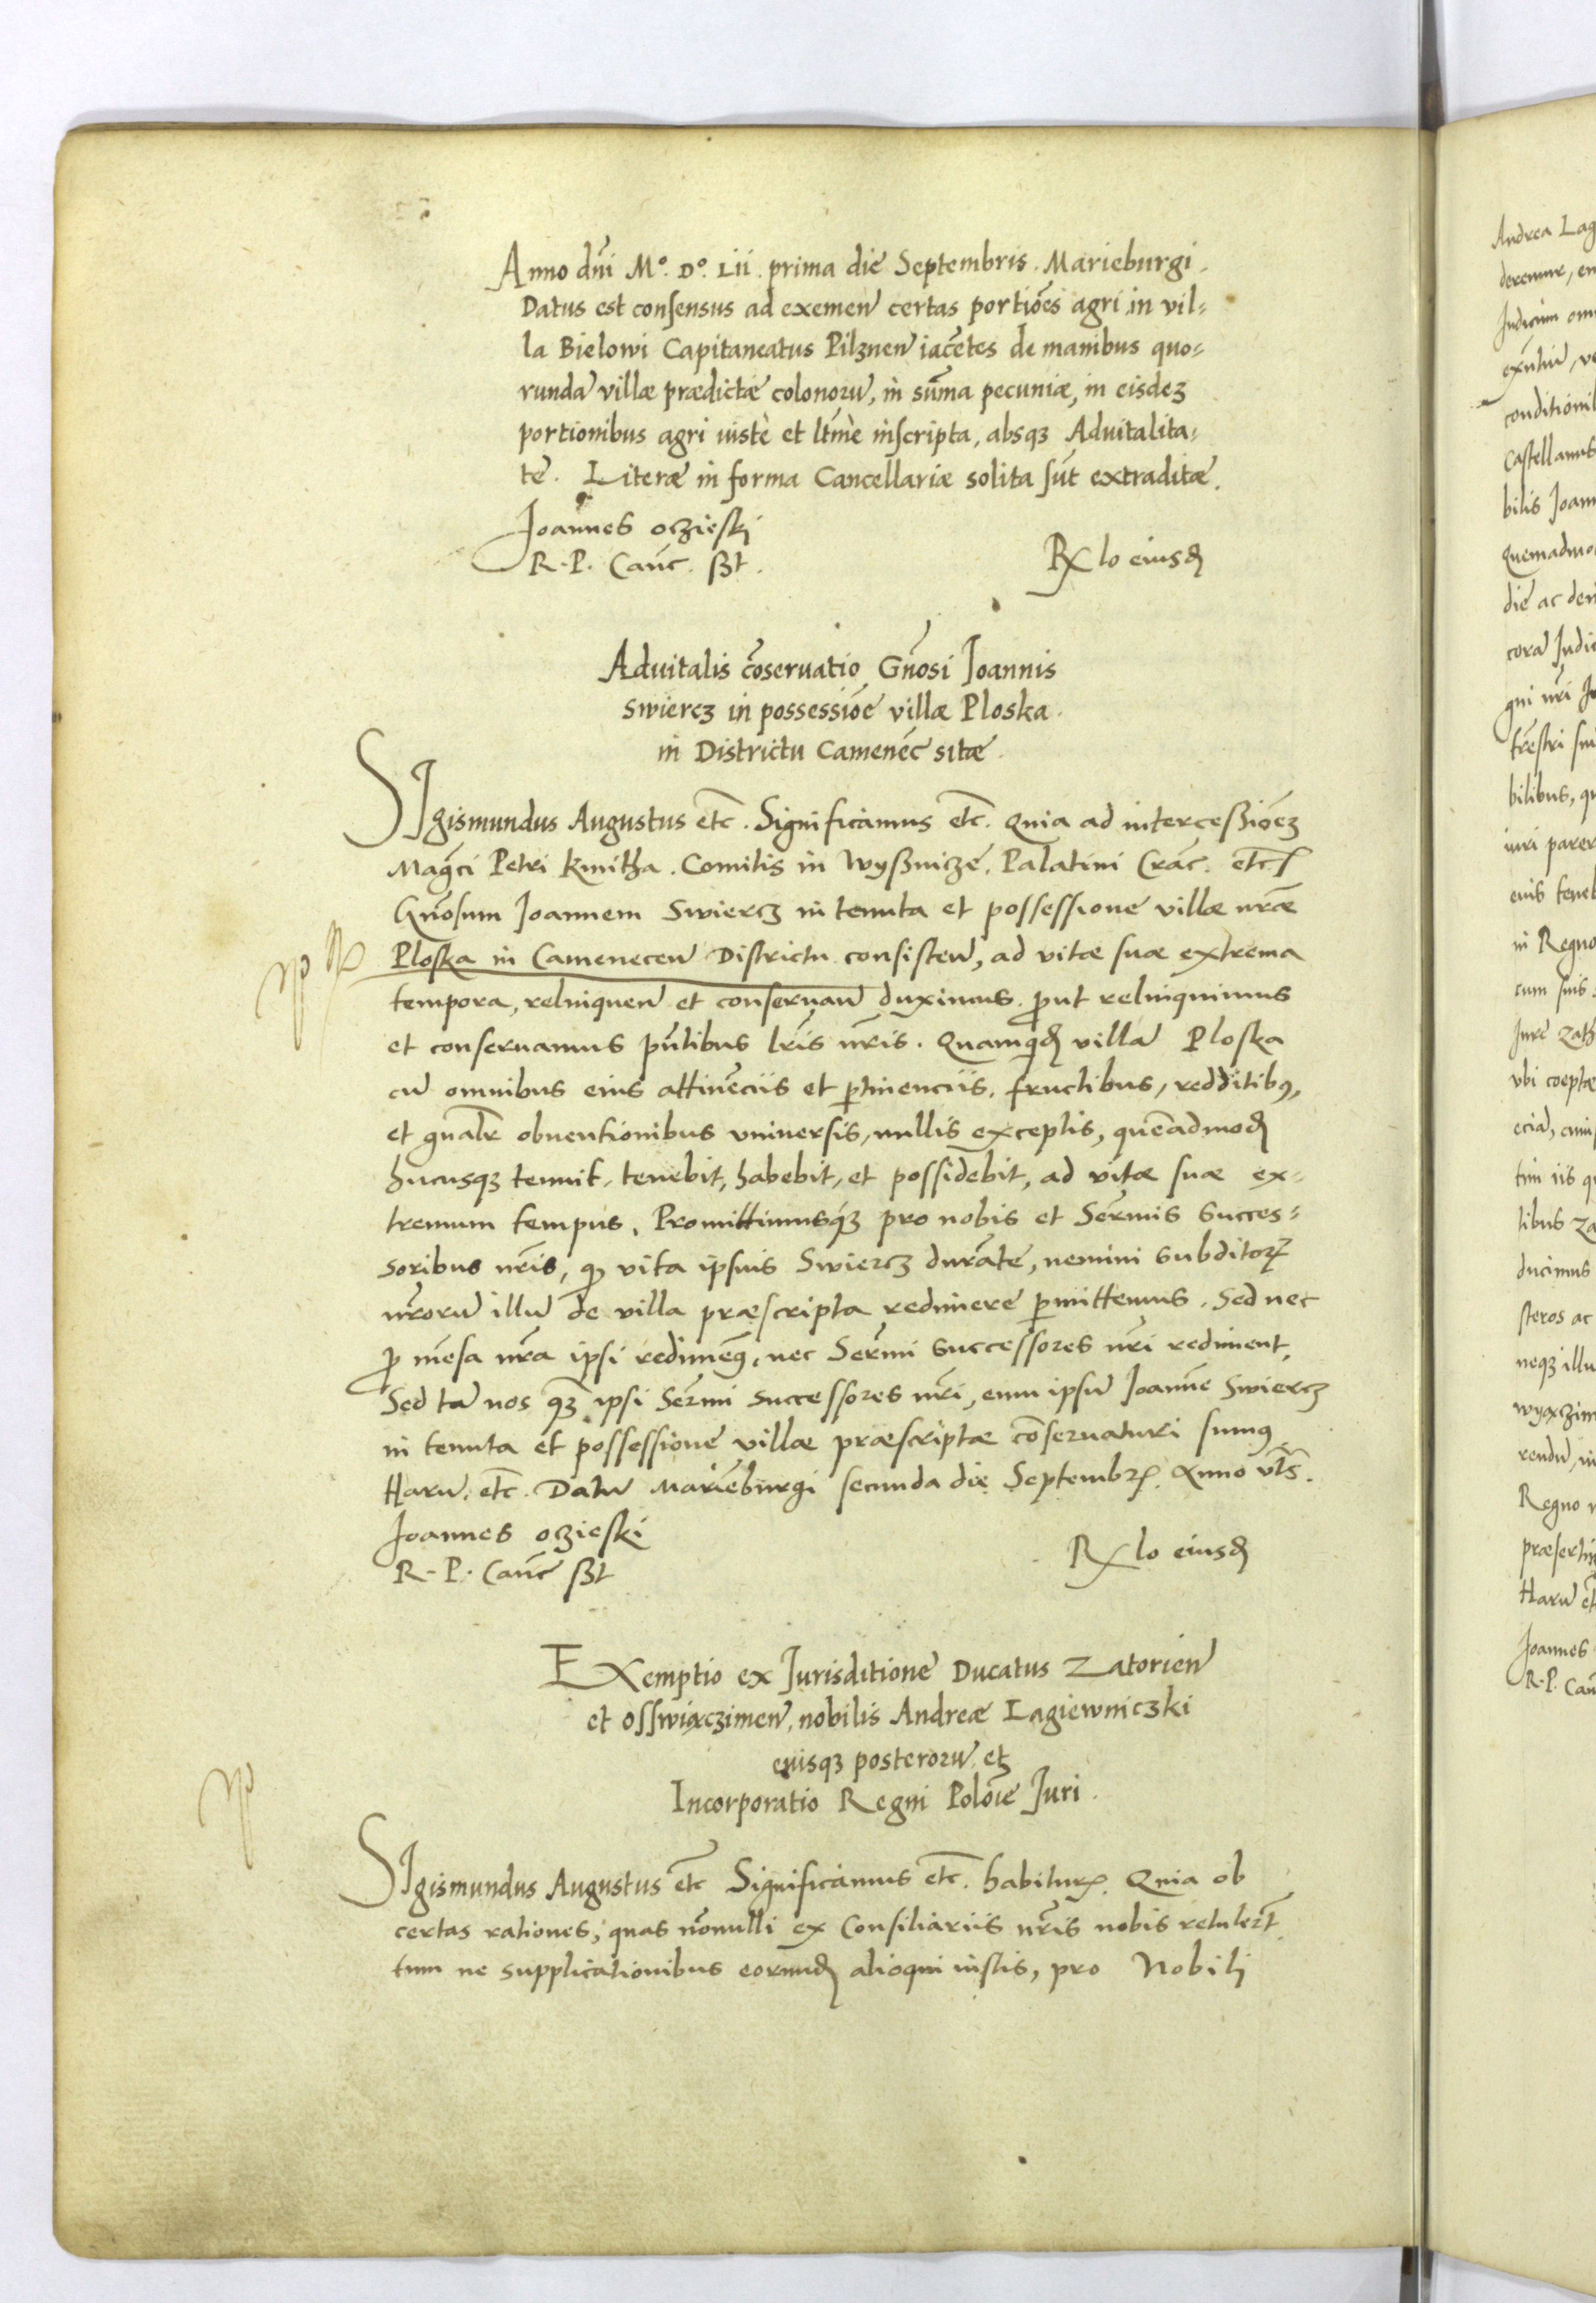 Anno dñi Mº. Dº. Lii. prima die Septembris. Marieburgi.
Datus est consensus ad exemeñ certas portiões agri in vil=
la Bielowi Capitaneatus Pilzneñ iacẽtes de manibus quo=
rundã villæ prædictæ colonorũ, in sũma pecuniæ, in eisdeȝ
portionibus agri iuste et ltm̃e inscripta, absqȝ Aduitalita=
te. Literæ in forma Cancellariæ solita sũt extraditæ.
Joannes oczieski
R. P. Cañc. ßt.
Rx lo eiusđ
Aduitalis cõseruatio Gñosi Joannis
Swiercz in possessiõe villæ Ploska.
in Districtu Camenec̃ sitæ.
SIgismundus Augustus etc̃. Significamus etc̃. Quia ad intercessiõeȝ
Magc̃i Petri Kmitha. Comitis in Wyßnicze. Palatini Crac̃. etc̃
Gñosum Joannem Swiercz in tenuta et possessione villæ nr̃æ
Ploska in Cameneceñ Districtu consisteñ, ad vitæ suæ extrema
tempora, relinqueñ et conseruañ duximus. ꝓut relinquimus
et conseruamus pñtibus lr̃is nr̃is. Quamquiđ villã Ploska
cũ omnibus eius attinẽciis et ꝑtinenciis. fructibus, redditibꝰ,
et gñalr̃ obuentionibus vniuersis, nullis exceptis, quẽadmođ
hucusqȝ tenuit, tenebit, habebit, et possidebit, ad vitæ suæ ex=
tremum tempus. Promittimusqȝ pro nobis et Serm̃is Succes=
soribus nr̃is, qđ vita ipsius Swiercz durãte, nemini subditoꝝ
nr̃orũ illũ de villa præscripta redimere ꝑmittemus. Sed nec
ꝓ mẽsa nr̃a ipsi redimemꝰ, nec Serm̃i Successores nr̃i rediment,
Sed tã nos qȝ ipsi Serm̃i successores nr̃i, eum ipsũ Joannẽ Swiercz
in tenuta et possessione villæ præscriptæ cõseruaturi sumꝰ
Harũ. etc̃. Datũ Mariẽburgi secunda die Septembꝝ. Anno vts̃.
Joannes oczieski
R. P. Cañc ßt
Rx lo eiusđ
EXemptio ex Jurisditione Ducatus Zatorieñ
et osswiączimeñ, nobilis Andreæ Lagiewniczki
eiusqȝ posterorũ et
Incorporatio Regni Polõiæ Juri.
SIgismundus Augustus etc̃ Significamus etc̃. habituꝝ. Quia ob
certas rationes, quas nõnulli ex Consiliariis nr̃is nobis retulert̃
tum ne supplicationibus eorunđ alioqui iustis, pro Nobili